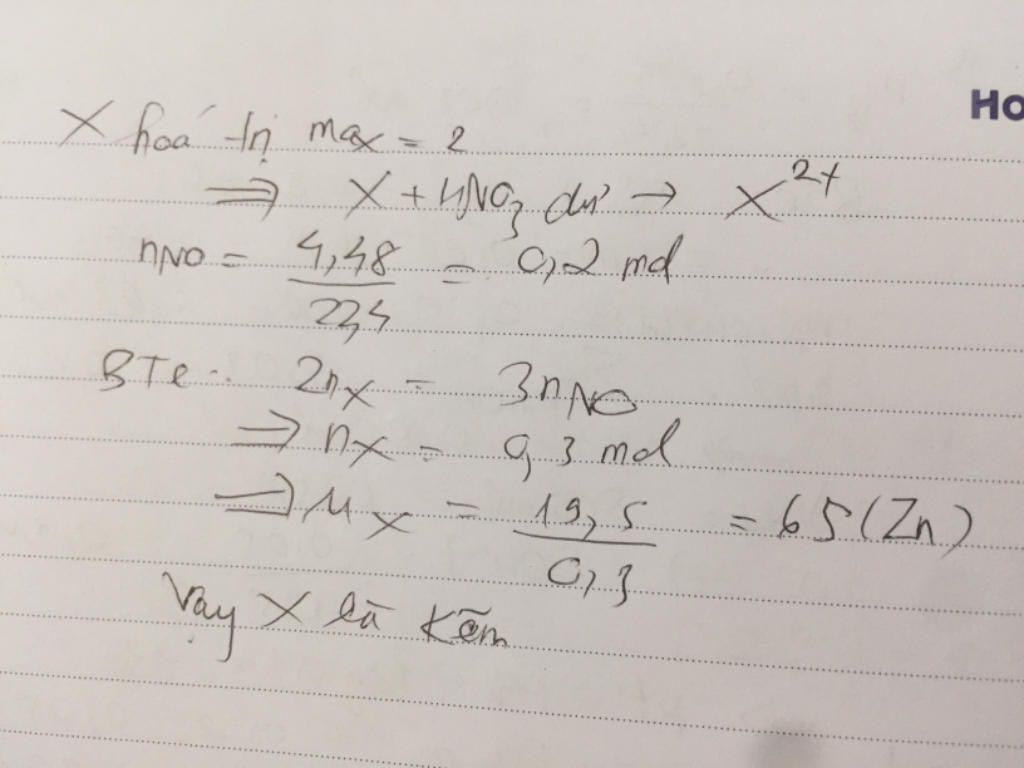 Ho
X hoá trị max = 2
⇒ X + HNO₃ dư → X²⁺
nNO = 4,48/22,4 = 0,2 mol
BTe: 2nX = 3nNO
⇒ nX = 0,3 mol
⇒ MX = 19,5/0,3 = 65 (Zn)
Vậy X là Kẽm